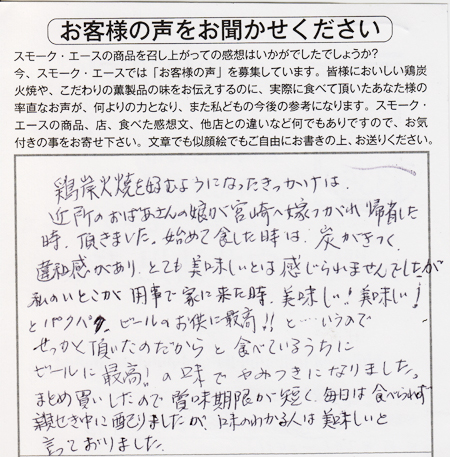 お客様の声をお聞かせください
スモーク・エースの商品を召し上がっての感想はいかがでしたでしょうか?
今、スモーク・エースでは「お客様の声」を募集しています。皆様においしい鶏炭
火焼や、こだわりの薫製品の味をお伝えするのに、実際に食べて頂いたあなた様の
率直なお声が、何よりの力となり、また私どもの今後の参考になります。スモーク・
エースの商品、店、食べた感想文、他店との違いなど何でもありですので、お気
付きの事をお寄せ下さい。文章でも似顔絵でもご自由にお書きの上、お送りください。
鶏炭火焼を好むようになったきっかけは、
近所のおばあさんの娘が宮崎へ嫁つがれ帰省した
時、頂きました。始めて食した時は、炭がきつく、
違和感があり、とても美味しいとは感じられませんでしたが
私のいとこが用事で家に来た時、美味しい!美味しい!
とパクパク、ビールのお供に最高!!と…いうので
せっかく頂いたのだからと食べているうちに
ビールに最高!の味でやみつきになりました。
まとめ買いしたので賞味期限が短く、毎日は食べられず
親せき中に配りましたが、味のわかる人は美味しいと
言っておりました。